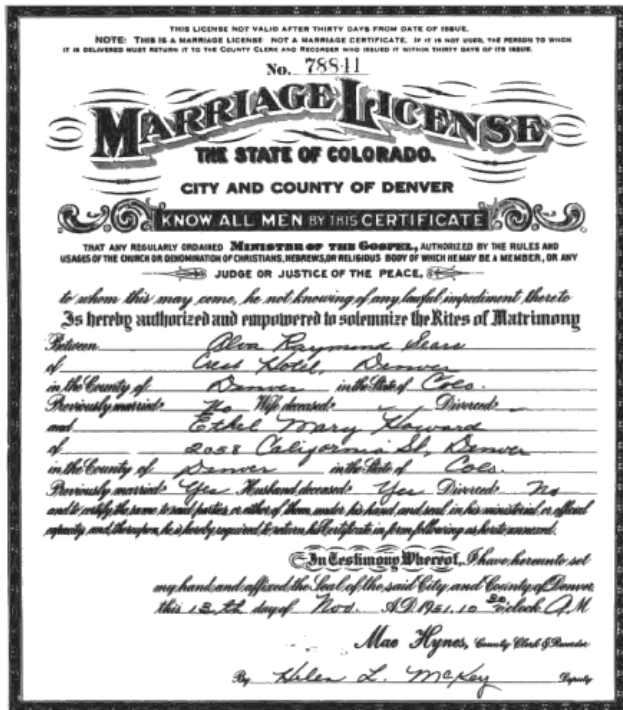 THIS LICENSE NOT VALID AFTER THIRTY DAYS FROM DATE OF ISSUE.
NOTE: THIS IS A MARRIAGE LICENSE NOT A MARRIAGE CERTIFICATE. IF IT IS NOT USED, THE PERSON TO WHOM
IT IS DELIVERED MUST RETURN IT TO THE COUNTY CLERK AND RECORDER WHO ISSUED IT WITHIN THIRTY DAYS OF ITS ISSUE.
No. 78841
MARRIAGE LICENSE
THE STATE OF COLORADO.
CITY AND COUNTY OF DENVER
KNOW ALL MEN BY THIS CERTIFICATE
THAT ANY REGULARLY ORDAINED MINISTER OF THE GOSPEL, AUTHORIZED BY THE RULES AND
USAGES OF THE CHURCH OR DENOMINATION OF CHRISTIANS, HEBREWS, OR RELIGIOUS BODY OF WHICH HE MAY BE A MEMBER, OR ANY
JUDGE OR JUSTICE OF THE PEACE,
to whom this may come, he not knowing of any lawful impediment thereto
Is hereby authorized and empowered to solemnize the Rites of Matrimony
Between Alva Raymond Sears
of Cress Hotel, Denver
in the County of Denver in the State of Colo.
Previously married: No Wife deceased: Divorced
and Ethel Mary Howard
of 2058 California St, Denver
in the County of Denver in the State of Colo.
Previously married: Yes Husband deceased: Yes Divorced: No
and to certify the same to said parties or either of them under his hand and seal in his ministerial or official
capacity and thereupon he is hereby required to return his Certificate in form following as hereto annexed.
In Testimony Whereof, I have hereunto set
my hand and affixed the Seal of the said City and County of Denver
this 13th day of Nov. A.D. 1951, 10 30 o'clock A.M
Mae Hynes, County Clerk & Recorder
By Helen L. McKey Deputy